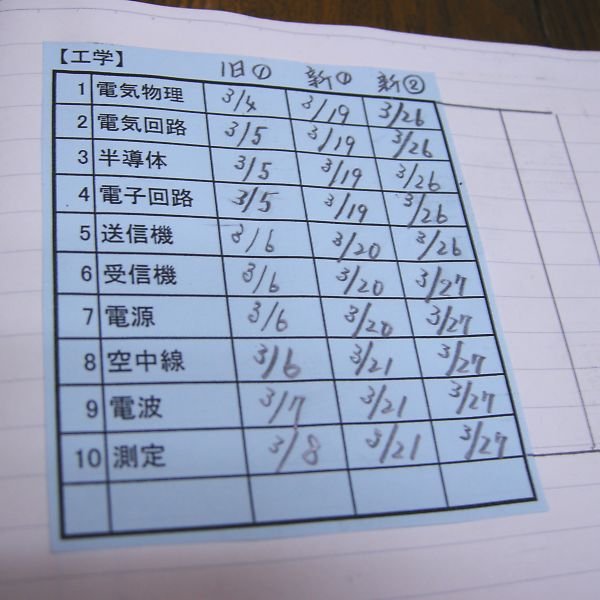 【工学】 旧① 新① 新②
1 電気物理 3/4 3/19 3/26
2 電気回路 3/5 3/19 3/26
3 半導体 3/5 3/19 3/26
4 電子回路 3/5 3/19 3/26
5 送信機 3/6 3/20 3/26
6 受信機 3/6 3/20 3/27
7 電源 3/6 3/20 3/27
8 空中線 3/6 3/21 3/27
9 電波 3/7 3/21 3/27
10 測定 3/8 3/21 3/27